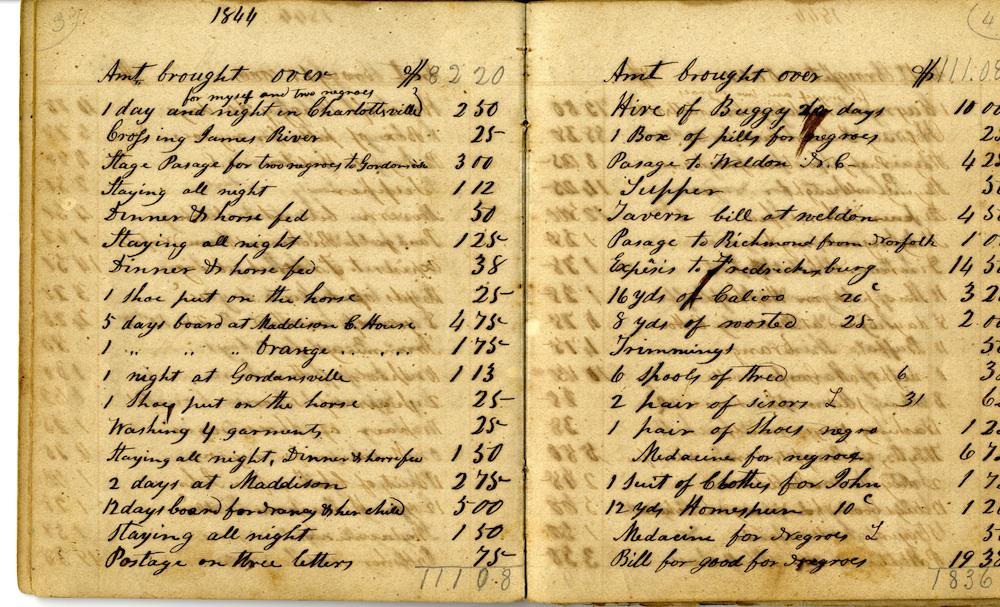 37
1844
Amt brought over $ 82 20
for myself and two negroes
1 day and night in Charlottsville 2 50
Crossing James River 25
Stage Pasage for two negroes to Gordonsv 3 00
Staying all night 1 12
Dinner & horse fed 50
Staying all night 1 25
Dinner & horse fed 38
1 shoe put on the horse 25
5 days board at Maddison C. House 4 75
1 " " " Orange ...... 1 75
1 night at Gordansville 1 13
1 Shoe put on the horse 25
Washing 4 garments 25
Staying all night, Dinner & horse fee 1 50
2 days at Maddison 2 75
12 days board for & her child 5 00
Staying all night 1 50
Postage on three letters 75
111 08
4
Amt brought over $ 111.08
Hire of Buggy days 10 0
1 Box of pills for negroes 2
Pasage to Weldon N.C. 4 25
Supper 5
Tavern bill at weldon 4 5
Pasage to Richmond from Norfolk 1 0
Expësis to Fredricksburg 14 5
16 yds of Calico 20c 3 2
8 yds of woosted 25 2 0
Trimmings 5
6 Spools of thred 6 3
2 pair of sisors 31 6
1 pair of Shoes negro 1 2
Medacine for negroes 6 7
1 Suit of Clothes for John 1 7
12 yds Homespun 10c 1 2
Medacine for Negroes 5
Bill for good for Negroes 19 3
1836